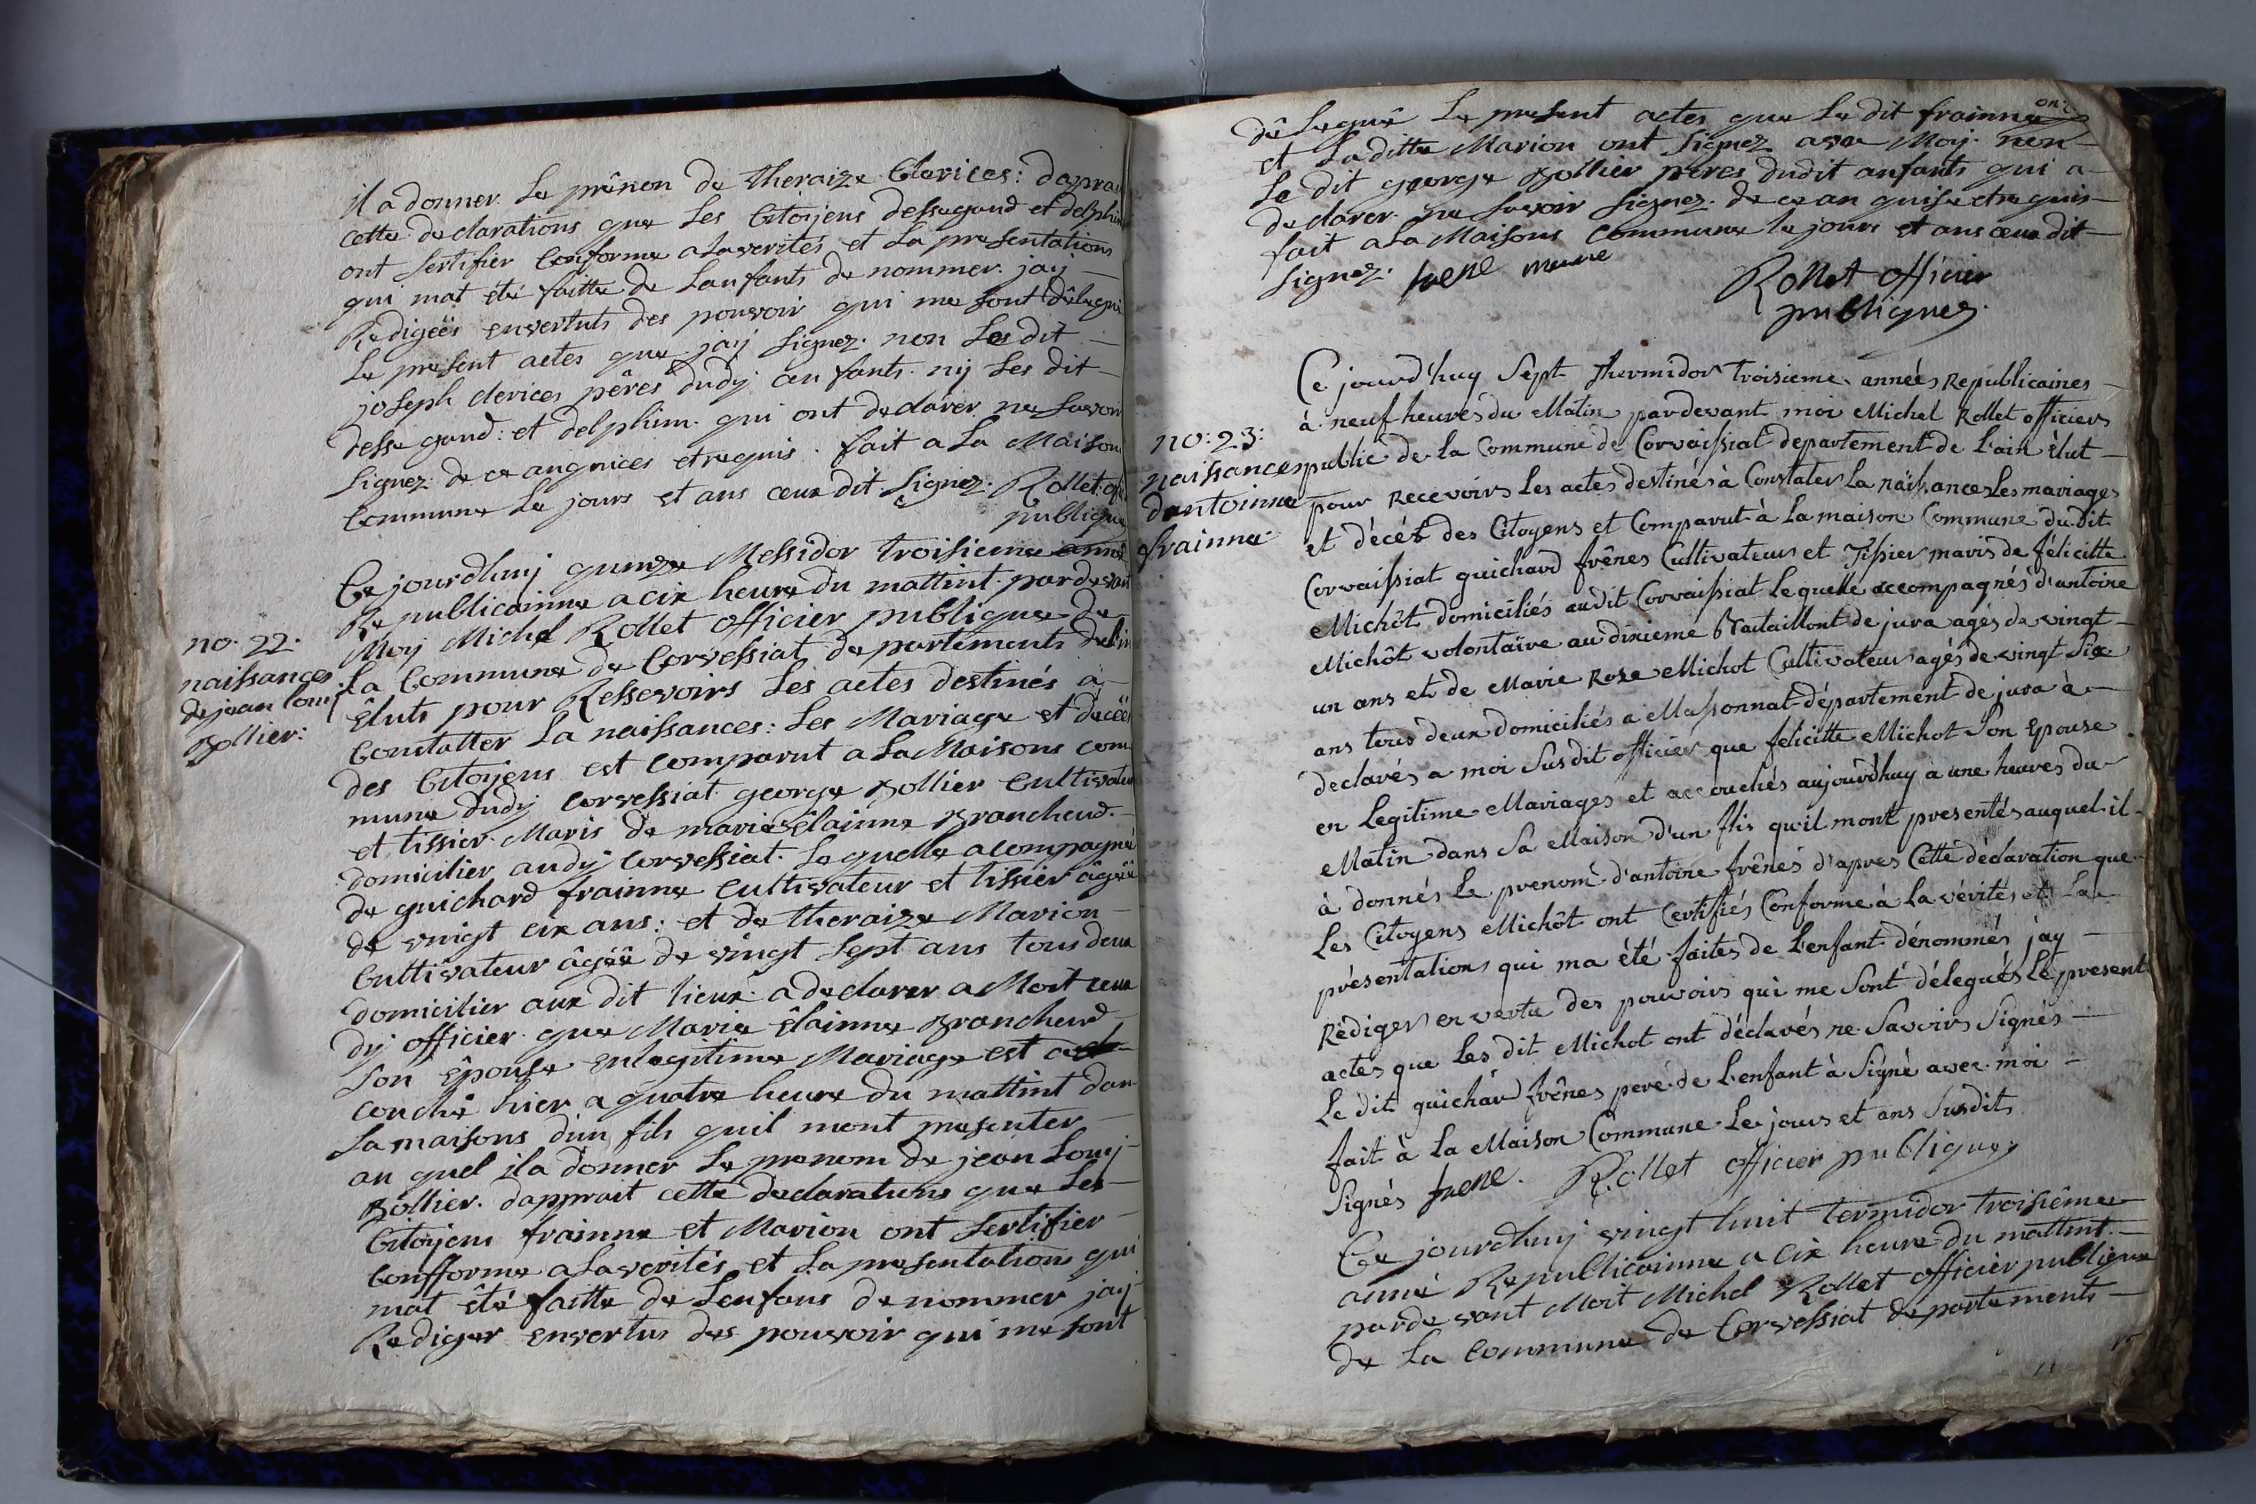 il a donner le prênon de theraize Clerices: daprai
cette declarations que les Citoyens dessegand et delphin
ont sertifier Conforme alaverites et la presentations
qui mat été faitte de Lanfants de nommer. jaij
Redigéës envertuts des pouvoir qui me sont dêlegui
Le present actes que jaij signez. non Les dit
joseph clerices pêres dudij anfants. nij les dit
desse gand: et delphim. qui ont declarer ne savoir
signez de ce anquices etrequis. fait a La Maison
Commune Le jours et ans ceux dit signez. Rollet off
publique
no. 22.
naissances
de jean louij
Bollier:
Ce jourdhuij quinze Messidor troisieme année
Republicainne a cix heure du mattint. pardevant
Moij Michel Rollet officier publique de
La Commune de Corvessiat departements delin
êluts pour Ressevoirs Les actes destinés à
Constatter La naissances: Les Mariage et décéës
des Citoyens est comparut a LaMaisons com
mune dudij corvessiat george Bollier cultivateur
et tissier. Maris de marie êlainne Brancheud.
domicilier audij corvessiat. Lequelle acompagné
de guichard frainne cultivateur et tissier âgéë
de vnigt cix ans: et de theraize Marion
Cultivateur âgéë de vingt sept ans tous deux
domicilier aux dit lieux a declarer a Moit ceux
dij officier que Marie êlainne Brancheud
son êpouse enlegitime Mariage est ac
couchê hier a quatre heure du mattint dan
La maisons dun fils quil mont presenter
au quel ila donner Le prenom de jean Louij
Bollier. dapprait cette declarations que Les
Citoyens frainne et Marion ont sertifier
Confforme alaverités et La presentations qui
mat êté faitte de Lenfans denommer jaij
Rediger envertus des pouvoir qui me sont
dêleguê Le present actes que Le dit frainne
et Laditte Marion ont signez avec Moij. non
Le dit george Bollier peres dudit anfants qui a
declarer. ne savoir signez. de ce an quise etrequis
fait a La Maisons Commune le jours et ans ceux dit
signez. frene
Rollet officier
publiquez.
no: 23:
naissances
dantoinne
frainne
Ce jourd'huy Sept thermidor troisieme années Republicaines
à neuf heures du Matin pardevant moi Michel Rollet officiers
public de la Commune de Corvaissiat departement de L'ain élut
pour Recevoirs Les actes destinés à Constater La naissances Les mariages
et décés des Citoyens et Comparut à La maison Commune du dit
Corvaissiat guichard frênes Cultivateur et Tissier maris de félicitte
Michôt domiciliés audit Corvaissiat Lequelle accompagnés d'antoine
Michôt volontaire au dixieme Bataillont de jura agés de vingt
un ans et de Marie Rose Michot Cultivateur agés de vingt Six
ans tous deux domiciliés a Massonnat département de jura à
declarés a moi Susdit officier que felicitte Michot Son Epouse
en Legitime Mariages et accouchés aujourd'huy à une heures du
Matin dans Sa Maison d'un fils qu'il mont presentés auquel il
à donnés Le prenom d'antoine frênes d'apres Cette déclaration que
Les Citoyens Michôt ont Certifiés Conforme à La vérités et La
présentations qui ma été faites de L'enfant dénommés jay
Rédiger en vertu des pouvoirs qui me Sont délegués Le present
actes que Les dit Michot ont déclarés ne Savoirs Signés
Le dit guichar frênes pere de L'enfant à Signè avec moi
fait à La Maison Commune Les jours et ans Susdits
Signés frene. Rollet officier publiquez
Ce jourdhuij vingt huit termidor troisiême
anné Republicainne a cix heure du mattint
parde vant Moit Michel Rollet officier publique
de La commune de Corvessiat departements